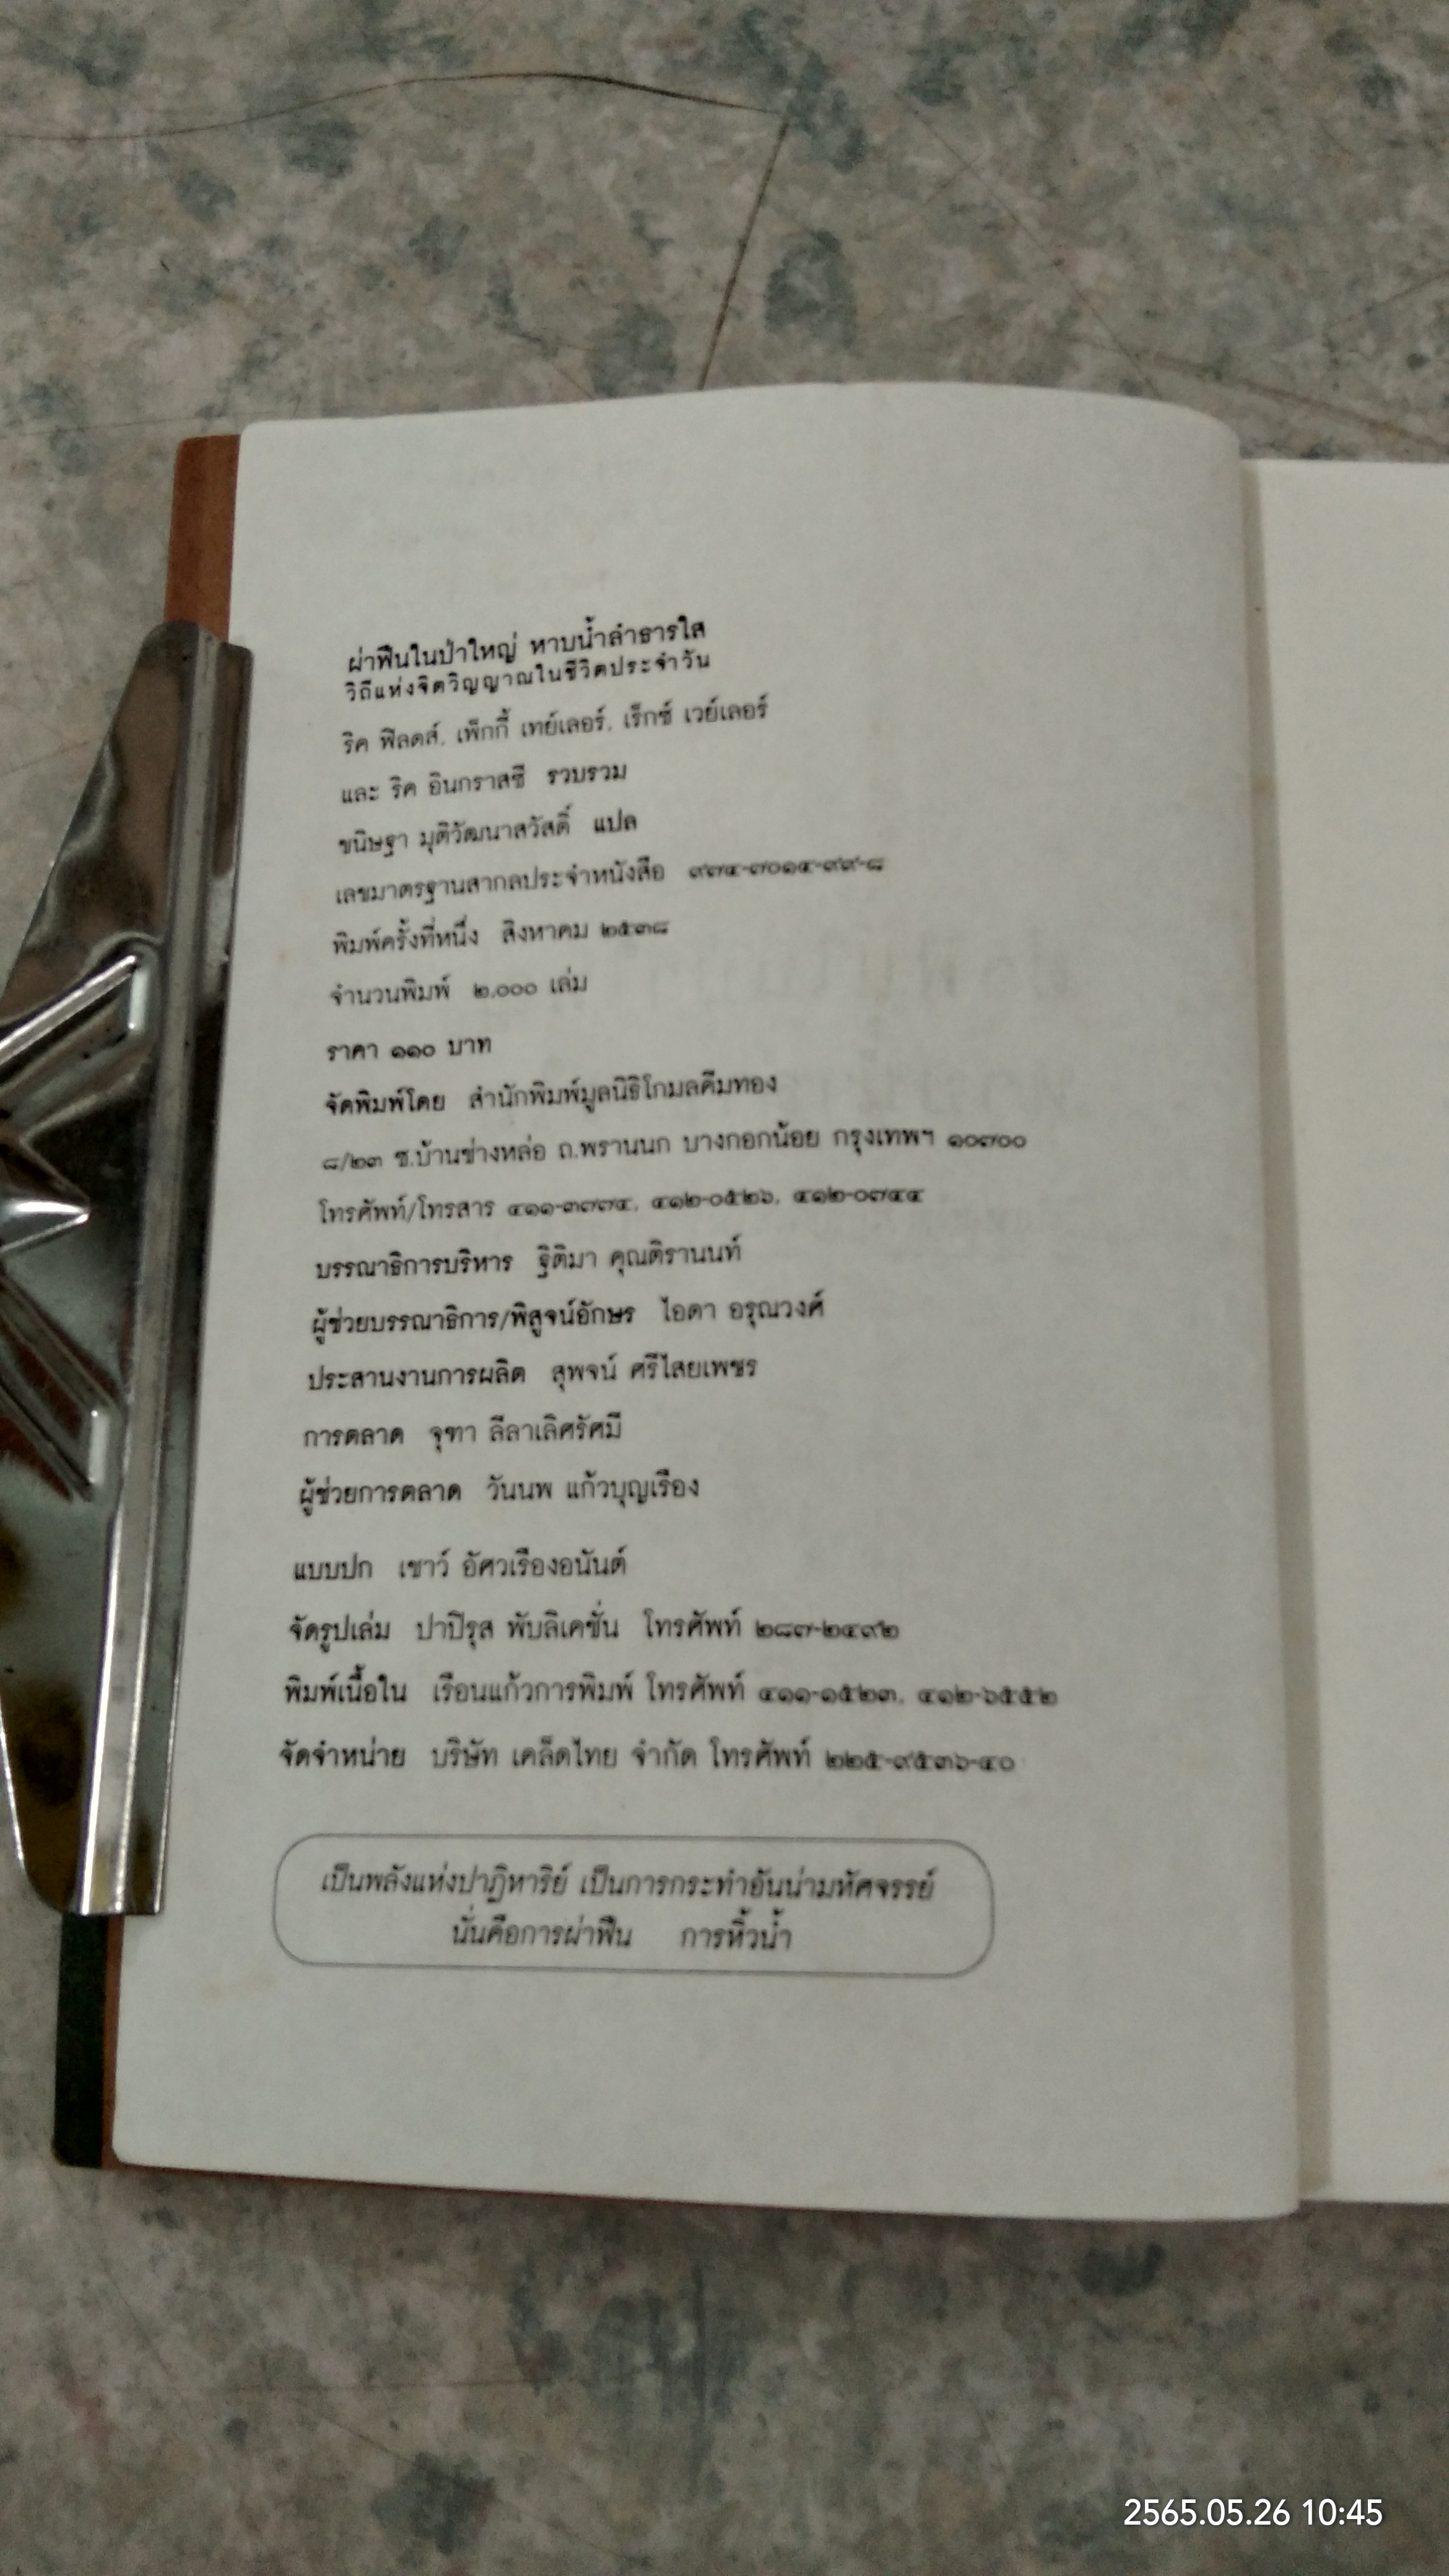 ผ่าฟืนในป่าใหญ่ หาบน้ำลำธารใส
วิถีแห่งจิตวิญญาณในชีวิตประจำวัน
ริค ฟิลดส์, เพ็กกี้ เทย์เลอร์, เร็กซ์ เวย์เลอร์
และ ริค อินกราสซี รวบรวม
ขนิษฐา มุติวัฒนาสวัสดิ์ แปล
เลขมาตรฐานสากลประจำหนังสือ ๙๗๔-๗๐๑๔-๙๙-๘
พิมพ์ครั้งที่หนึ่ง สิงหาคม ๒๕๓๘
จำนวนพิมพ์ ๒,๐๐๐ เล่ม
ราคา ๑๑๐ บาท
จัดพิมพ์โดย สำนักพิมพ์มูลนิธิโกมลคีมทอง
๘/๒๓ ซ.บ้านช่างหล่อ ถ.พรานนก บางกอกน้อย กรุงเทพฯ ๑๐๗๐๐
โทรศัพท์/โทรสาร ๔๑๑-๓๗๗๔, ๔๑๒-๐๕๒๖, ๔๑๒-๐๗๔๔
บรรณาธิการบริหาร ฐิติมา คุณติรานนท์
ผู้ช่วยบรรณาธิการ/พิสูจน์อักษร ไอดา อรุณวงศ์
ประสานงานการผลิต สุพจน์ ศรีไสยเพชร
การตลาด จุฑา ลีลาเลิศรัศมี
ผู้ช่วยการตลาด วันนพ แก้วบุญเรือง
แบบปก เชาว์ อัศวเรืองอนันต์
จัดรูปเล่ม ปาปิรุส พับลิเคชั่น โทรศัพท์ ๒๘๗-๒๔๙๒
พิมพ์เนื้อใน เรือนแก้วการพิมพ์ โทรศัพท์ ๔๑๑-๑๕๒๓, ๔๑๒-๖๕๕๒
จัดจำหน่าย บริษัท เคล็ดไทย จำกัด โทรศัพท์ ๒๒๕-๙๕๓๖-๔๐
เป็นพลังแห่งปาฏิหาริย์ เป็นการกระทำอันน่ามหัศจรรย์
นั่นคือการผ่าฟืน การหิ้วน้ำ
2565.05.26 10:45